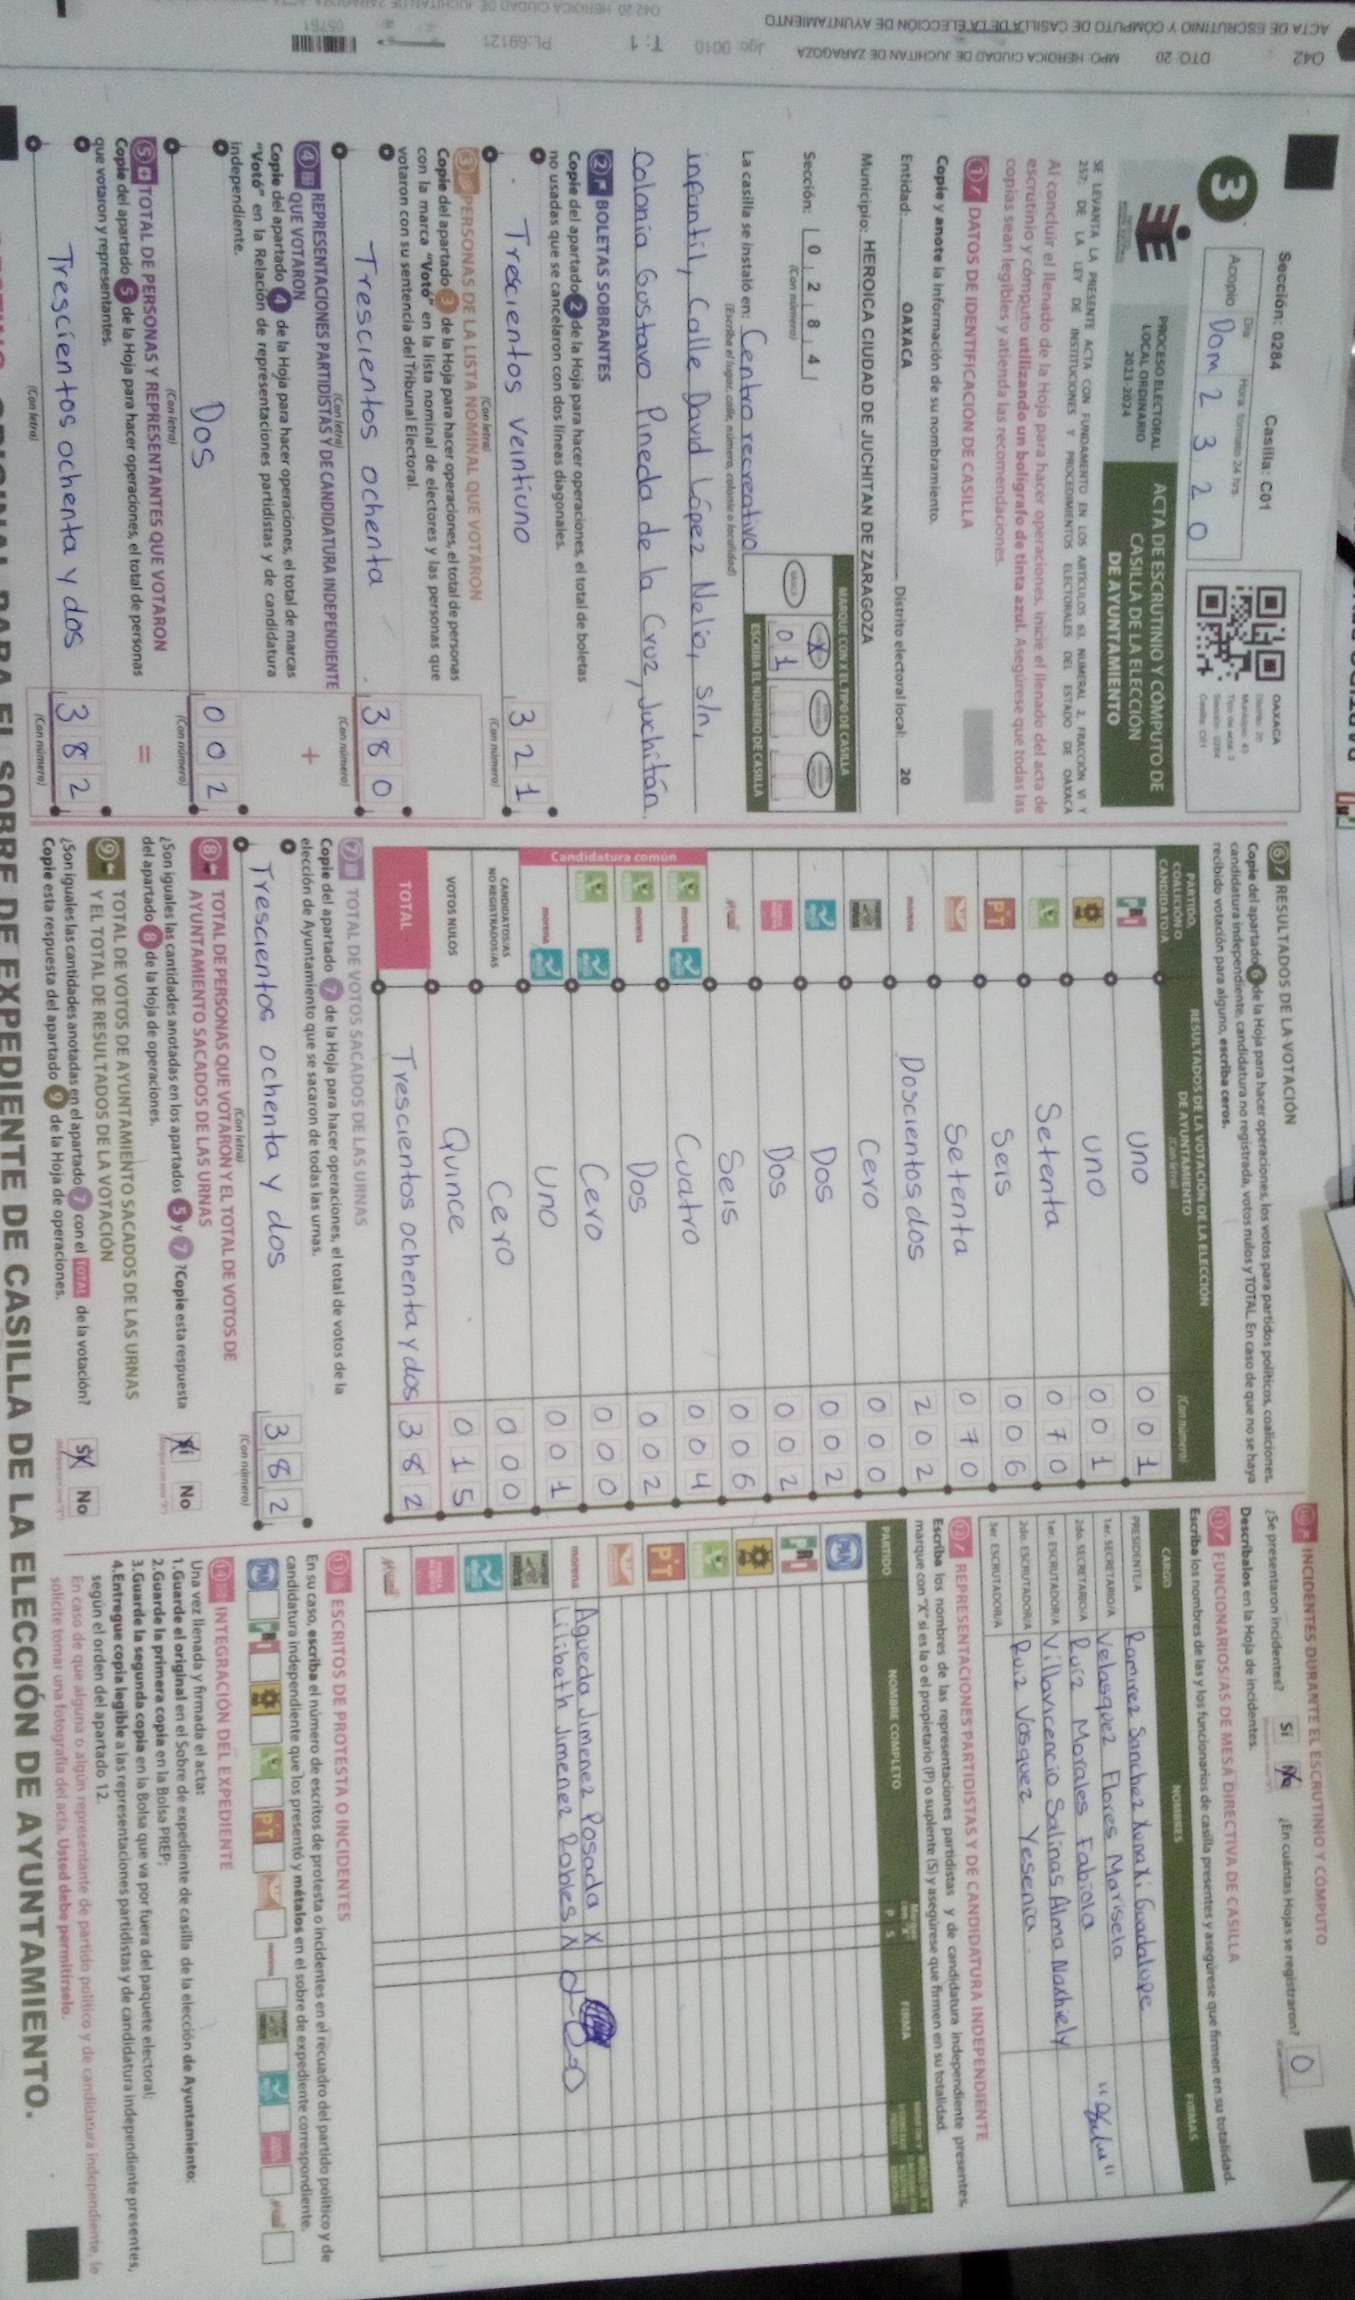 Sección: 0284 Casilla: C01
3
Acopio
Día
Hora formato 24 hrs.
Dom 2 3 2 0
OAXACA
PROCESO ELECTORAL
LOCAL ORDINARIO
2023-2024
ACTA DE ESCRUTINIO Y CÓMPUTO DE
CASILLA DE LA ELECCIÓN
DE AYUNTAMIENTO
SE LEVANTA LA PRESENTE ACTA CON FUNDAMENTO EN LOS ARTÍCULOS 63, NUMERAL 2, FRACCIÓN VI Y
257, DE LA LEY DE INSTITUCIONES Y PROCEDIMIENTOS ELECTORALES DEL ESTADO DE OAXACA
Al concluir el llenado de la Hoja para hacer operaciones, inicie el llenado del acta de
escrutinio y cómputo utilizando un bolígrafo de tinta azul. Asegúrese que todas las
copias sean legibles y atienda las recomendaciones.
1 DATOS DE IDENTIFICACIÓN DE CASILLA
Copie y anote la información de su nombramiento.
Entidad: OAXACA Distrito electoral local: 20
Municipio: HEROICA CIUDAD DE JUCHITAN DE ZARAGOZA
Sección: 0 2 8 4
(Con número)
MARQUE CON X EL TIPO DE CASILLA
X
0 1
ESCRIBA EL NÚMERO DE CASILLA
La casilla se instaló en: Centro recreativo
(Escriba el lugar, calle, número, colonia o localidad)
infantil, Calle David López Nelio, s/n,
Colonia Gustavo Pineda de la Cruz, Juchitán.
2 BOLETAS SOBRANTES
Copie del apartado 2 de la Hoja para hacer operaciones, el total de boletas
no usadas que se cancelaron con dos líneas diagonales.
Trescientos veintiuno 3 2 1
(Con letra) (Con número)
3 PERSONAS DE LA LISTA NOMINAL QUE VOTARON
Copie del apartado 3 de la Hoja para hacer operaciones, el total de personas
con la marca "Votó" en la lista nominal de electores y las personas que
votaron con su sentencia del Tribunal Electoral.
Trescientos ochenta 3 8 0
(Con letra) (Con número)
4 REPRESENTACIONES PARTIDISTAS Y DE CANDIDATURA INDEPENDIENTE
QUE VOTARON +
Copie del apartado 4 de la Hoja para hacer operaciones, el total de marcas
"Votó" en la Relación de representaciones partidistas y de candidatura
independiente.
Dos 0 0 2
(Con letra) (Con número)
5 TOTAL DE PERSONAS Y REPRESENTANTES QUE VOTARON =
Copie del apartado 5 de la Hoja para hacer operaciones, el total de personas
que votaron y representantes.
Trescientos ochenta y dos 3 8 2
(Con letra) (Con número)
6 RESULTADOS DE LA VOTACIÓN
Copie del apartado 6 de la Hoja para hacer operaciones, los votos para partidos políticos, coaliciones,
candidatura independiente, candidatura no registrada, votos nulos y TOTAL. En caso de que no se haya
recibido votación para alguno, escriba ceros.
PARTIDO,
COALICIÓN O
CANDIDATO/A
RESULTADOS DE LA VOTACIÓN DE LA ELECCIÓN
DE AYUNTAMIENTO
(Con letra) (Con número)
PRI Uno 0 0 1
Uno 0 0 1
Setenta 0 7 0
PT Seis 0 0 6
Setenta 0 7 0
morena Doscientos dos 2 0 2
Cero 0 0 0
Dos 0 0 2
Dos 0 0 2
Seis 0 0 6
Candidatura común
morena Cuatro 0 0 4
morena Dos 0 0 2
Cero 0 0 0
morena Uno 0 0 1
CANDIDATOS/AS
NO REGISTRADOS/AS Cero 0 0 0
VOTOS NULOS Quince 0 1 5
TOTAL Trescientos ochenta y dos 3 8 2
7 TOTAL DE VOTOS SACADOS DE LAS URNAS
Copie del apartado 7 de la Hoja para hacer operaciones, el total de votos de la
elección de Ayuntamiento que se sacaron de todas las urnas.
Trescientos ochenta y dos 3 8 2
(Con letra) (Con número)
8 TOTAL DE PERSONAS QUE VOTARON Y EL TOTAL DE VOTOS DE
AYUNTAMIENTO SACADOS DE LAS URNAS
¿Son iguales las cantidades anotadas en los apartados 5 y 7? Copie esta respuesta
del apartado 8 de la Hoja de operaciones.
Sí No
9 TOTAL DE VOTOS DE AYUNTAMIENTO SACADOS DE LAS URNAS
Y EL TOTAL DE RESULTADOS DE LA VOTACIÓN
¿Son iguales las cantidades anotadas en el apartado 7 con el TOTAL de la votación?
Copie esta respuesta del apartado 9 de la Hoja de operaciones.
Sí No
10 INCIDENTES DURANTE EL ESCRUTINIO Y CÓMPUTO
¿Se presentaron incidentes? Sí No ¿En cuántas Hojas se registraron? 0
Descríbalos en la Hoja de incidentes.
11 FUNCIONARIOS/AS DE MESA DIRECTIVA DE CASILLA
Escriba los nombres de las y los funcionarios de casilla presentes y asegúrese que firmen en su totalidad.
CARGO NOMBRES FIRMAS
PRESIDENTE/A Ramirez Sanchez Xunaxi Guadalupe
1er. SECRETARIO/A Velasquez Flores Marisela
2do. SECRETARIO/A Ruiz Morales Fabiola
1er. ESCRUTADOR/A Villavicencio Salinas Alma Nashiely
2do. ESCRUTADOR/A Ruiz Vasquez Yesenia.
3er. ESCRUTADOR/A
12 REPRESENTACIONES PARTIDISTAS Y DE CANDIDATURA INDEPENDIENTE
Escriba los nombres de las representaciones partidistas y de candidatura independiente presentes,
marque con "X" si es la o el propietario (P) o suplente (S) y asegúrese que firmen en su totalidad.
PARTIDO NOMBRE COMPLETO P S FIRMA
PAN
PRI
PT
morena Agueda Jimenez Posada X
Lilibeth Jimenez Robles X
13 ESCRITOS DE PROTESTA O INCIDENTES
En su caso, escriba el número de escritos de protesta o incidentes en el recuadro del partido político y de
candidatura independiente que los presentó y métalos en el sobre de expediente correspondiente.
PAN PRI PT morena
14 INTEGRACIÓN DEL EXPEDIENTE
Una vez llenada y firmada el acta:
1.Guarde el original en el Sobre de expediente de casilla de la elección de Ayuntamiento;
2.Guarde la primera copia en la Bolsa PREP;
3.Guarde la segunda copia en la Bolsa que va por fuera del paquete electoral;
4.Entregue copia legible a las representaciones partidistas y de candidatura independiente presentes,
según el orden del apartado 12.
En caso de que alguna o algún representante de partido político y de candidatura independiente, le
solicite tomar una fotografía del acta, Usted debe permitírselo.
SOBRE DE EXPEDIENTE DE CASILLA DE LA ELECCIÓN DE AYUNTAMIENTO.
042 DTO. 20 MPO. HEROICA CIUDAD DE JUCHITAN DE ZARAGOZA Jgo: 0010 T: 1 PL-69121 05761
ACTA DE ESCRUTINIO Y CÓMPUTO DE CASILLA DE LA ELECCIÓN DE AYUNTAMIENTO